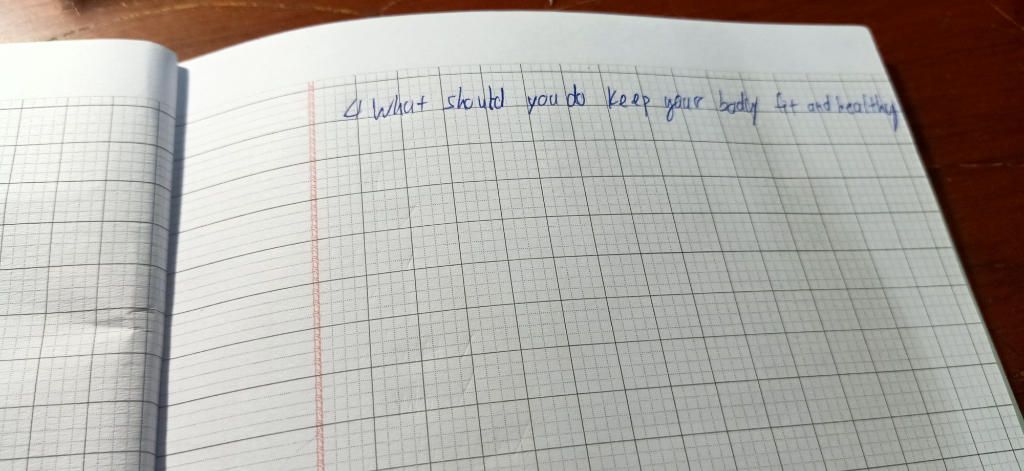 4 What should you do keep your body fit and healthy